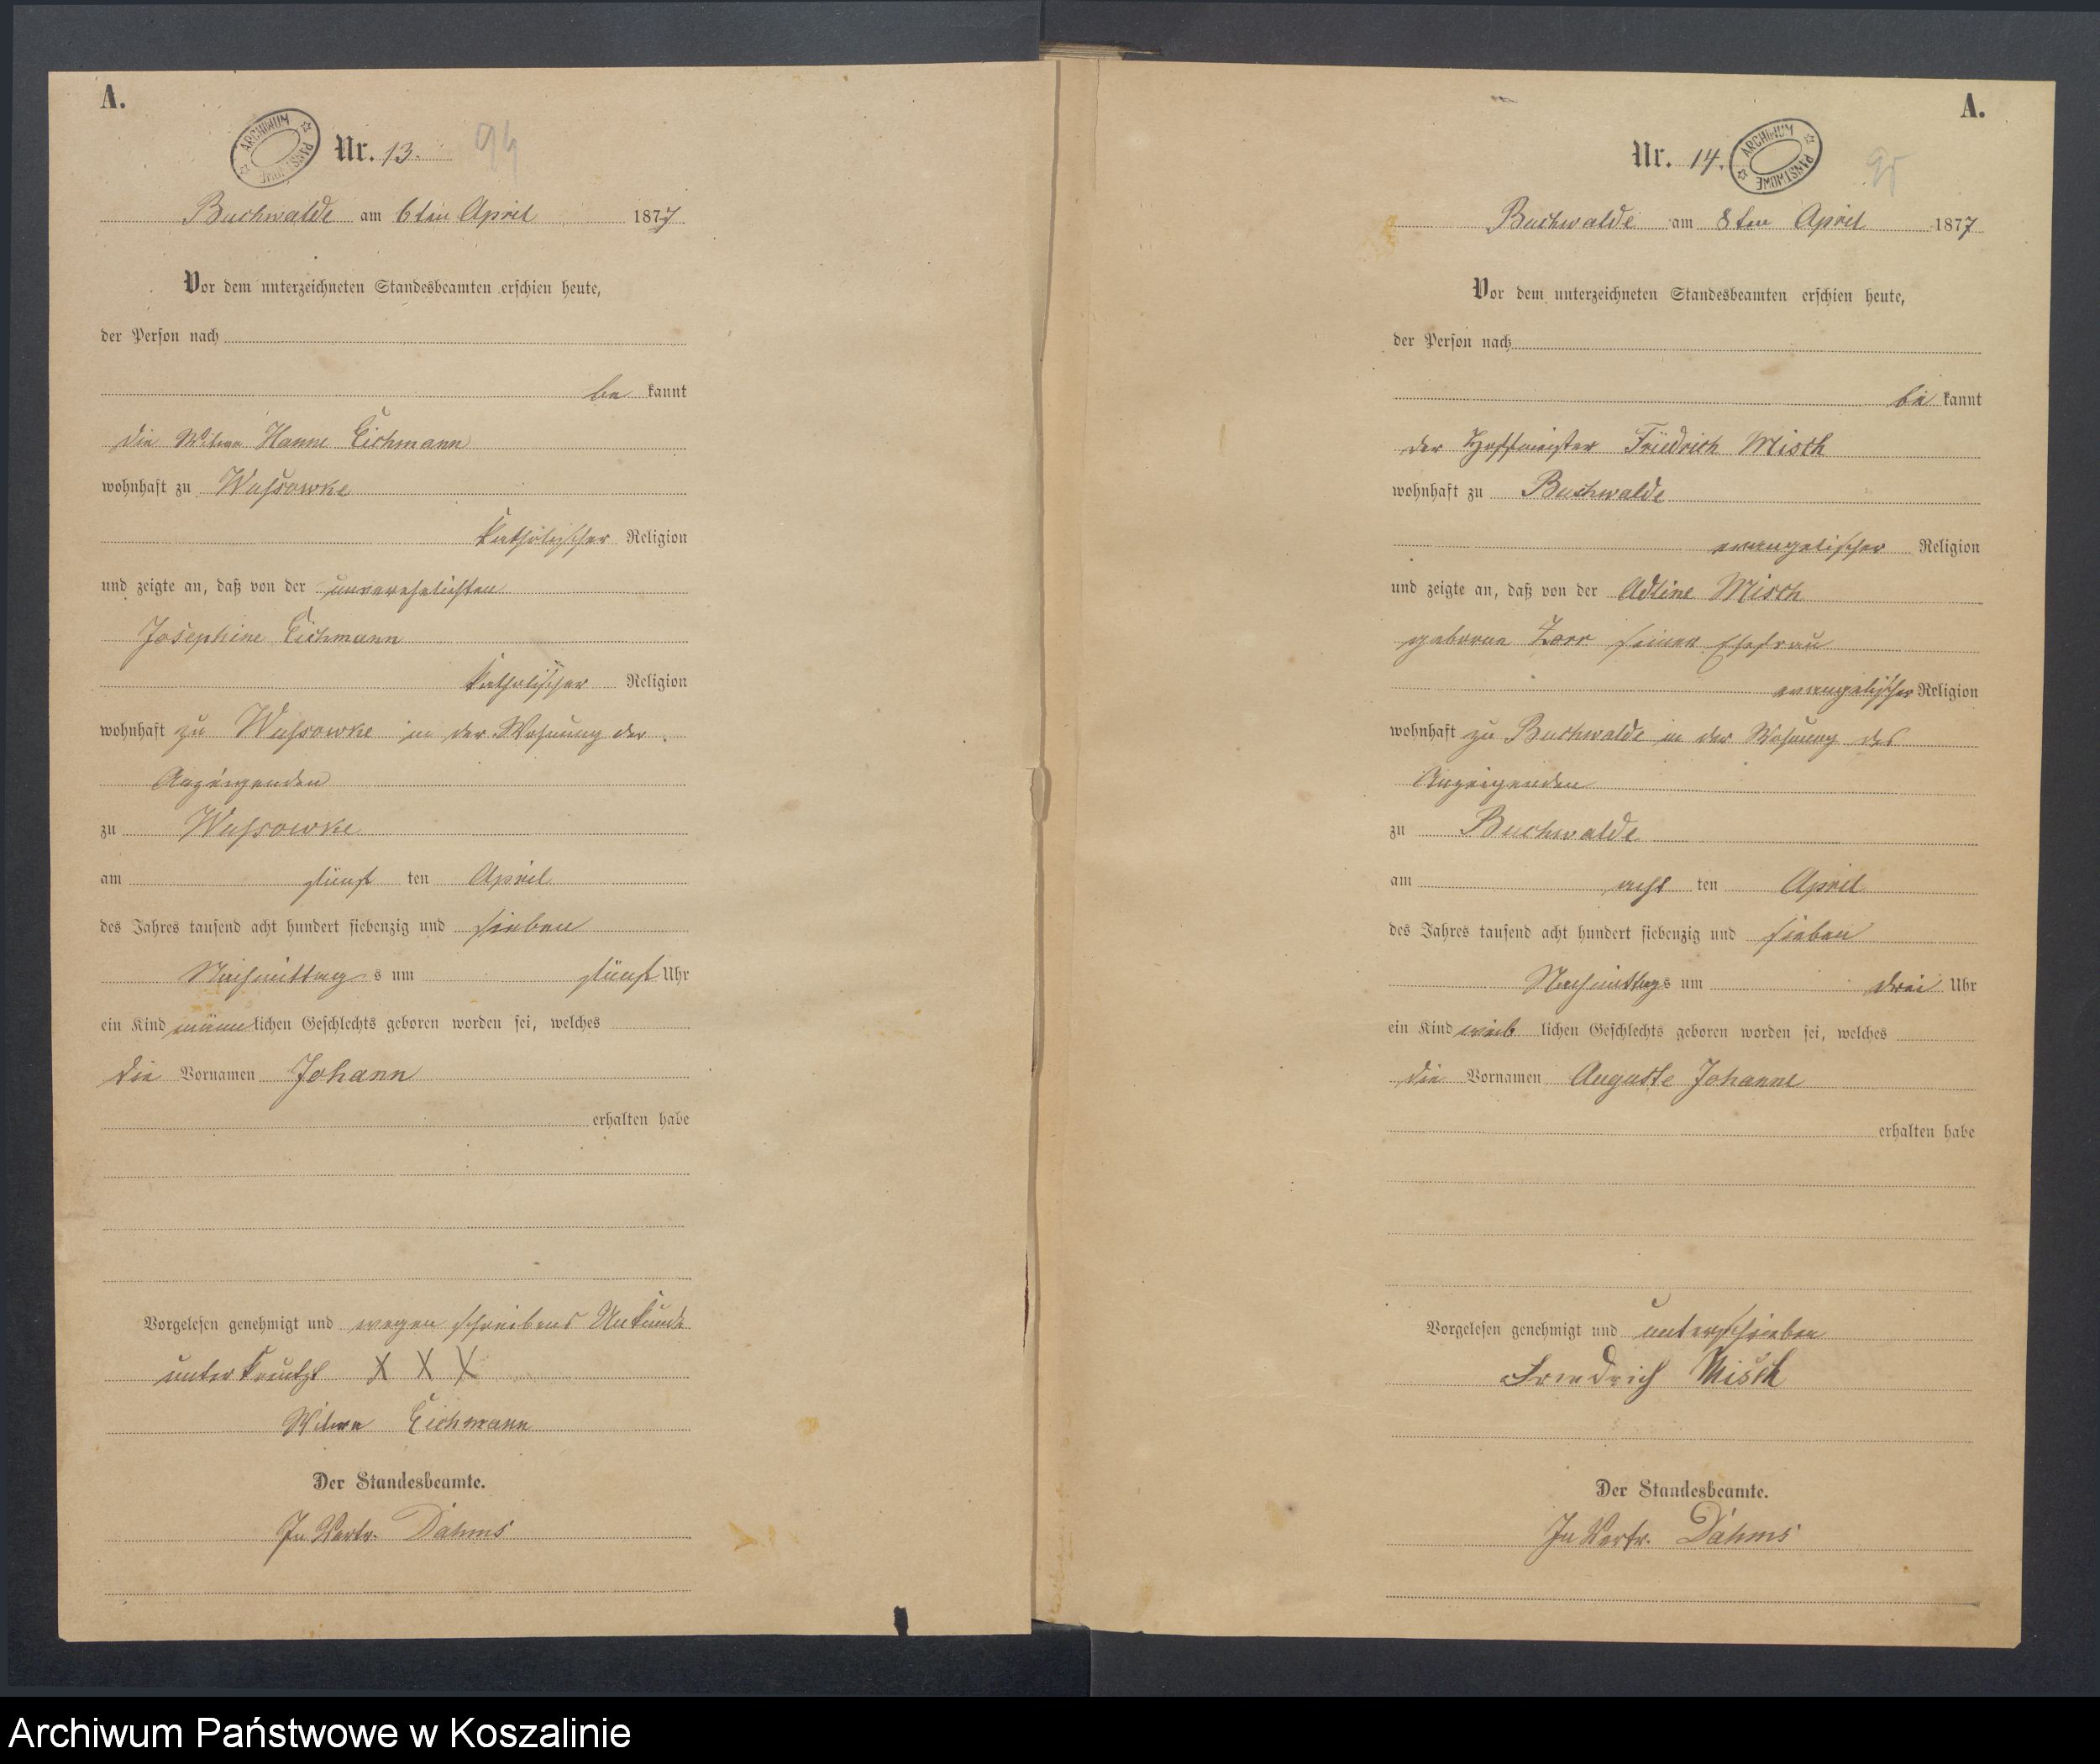 A.
ARCHIWUM PAŃSTWOWE
Nr. 13.
94
Buchwalde am 6ten April 1877
Vor dem unterzeichneten Standesbeamten erschien heute,
der Person nach
be kannt
die Witwe Hanne Eichmann
wohnhaft zu Wussowke
katholischer Religion
und zeigte an, daß von der unverehelichten
Josephine Eichmann
katholischer Religion
wohnhaft zu Wussowke in der Wohnung der
Anzeigenden
zu Wussowke
am fünf ten April
des Jahres tausend acht hundert siebenzig und sieben
Nachmittag s um fünf Uhr
ein Kind männlichen Geschlechts geboren worden sei, welches
die Vornamen Johann
erhalten habe
Vorgelesen genehmigt und wegen schreibens Unkunde
unterkreutzt X X X
Witwe Eichmann
Der Standesbeamte.
In Vertr. Dahms
A.
Nr. 14.
ARCHIWUM PAŃSTWOWE
95
Buchwalde am 8ten April 1877
Vor dem unterzeichneten Standesbeamten erschien heute,
der Person nach
be kannt
der Hoffmeister Friedrich Misch
wohnhaft zu Buchwalde
evangelischer Religion
und zeigte an, daß von der Adline Misch
geborne Zorr seiner Ehefrau
evangelischer Religion
wohnhaft zu Buchwalde in der Wohnung des
Anzeigenden
zu Buchwalde
am acht ten April
des Jahres tausend acht hundert siebenzig und sieben
Nachmittags um drei Uhr
ein Kind weib lichen Geschlechts geboren worden sei, welches
die Vornamen Auguste Johanne
erhalten habe
Vorgelesen genehmigt und unterschieben
Friedrich Misch
Der Standesbeamte.
In Vertr. Dahms
Archiwum Państwowe w Koszalinie